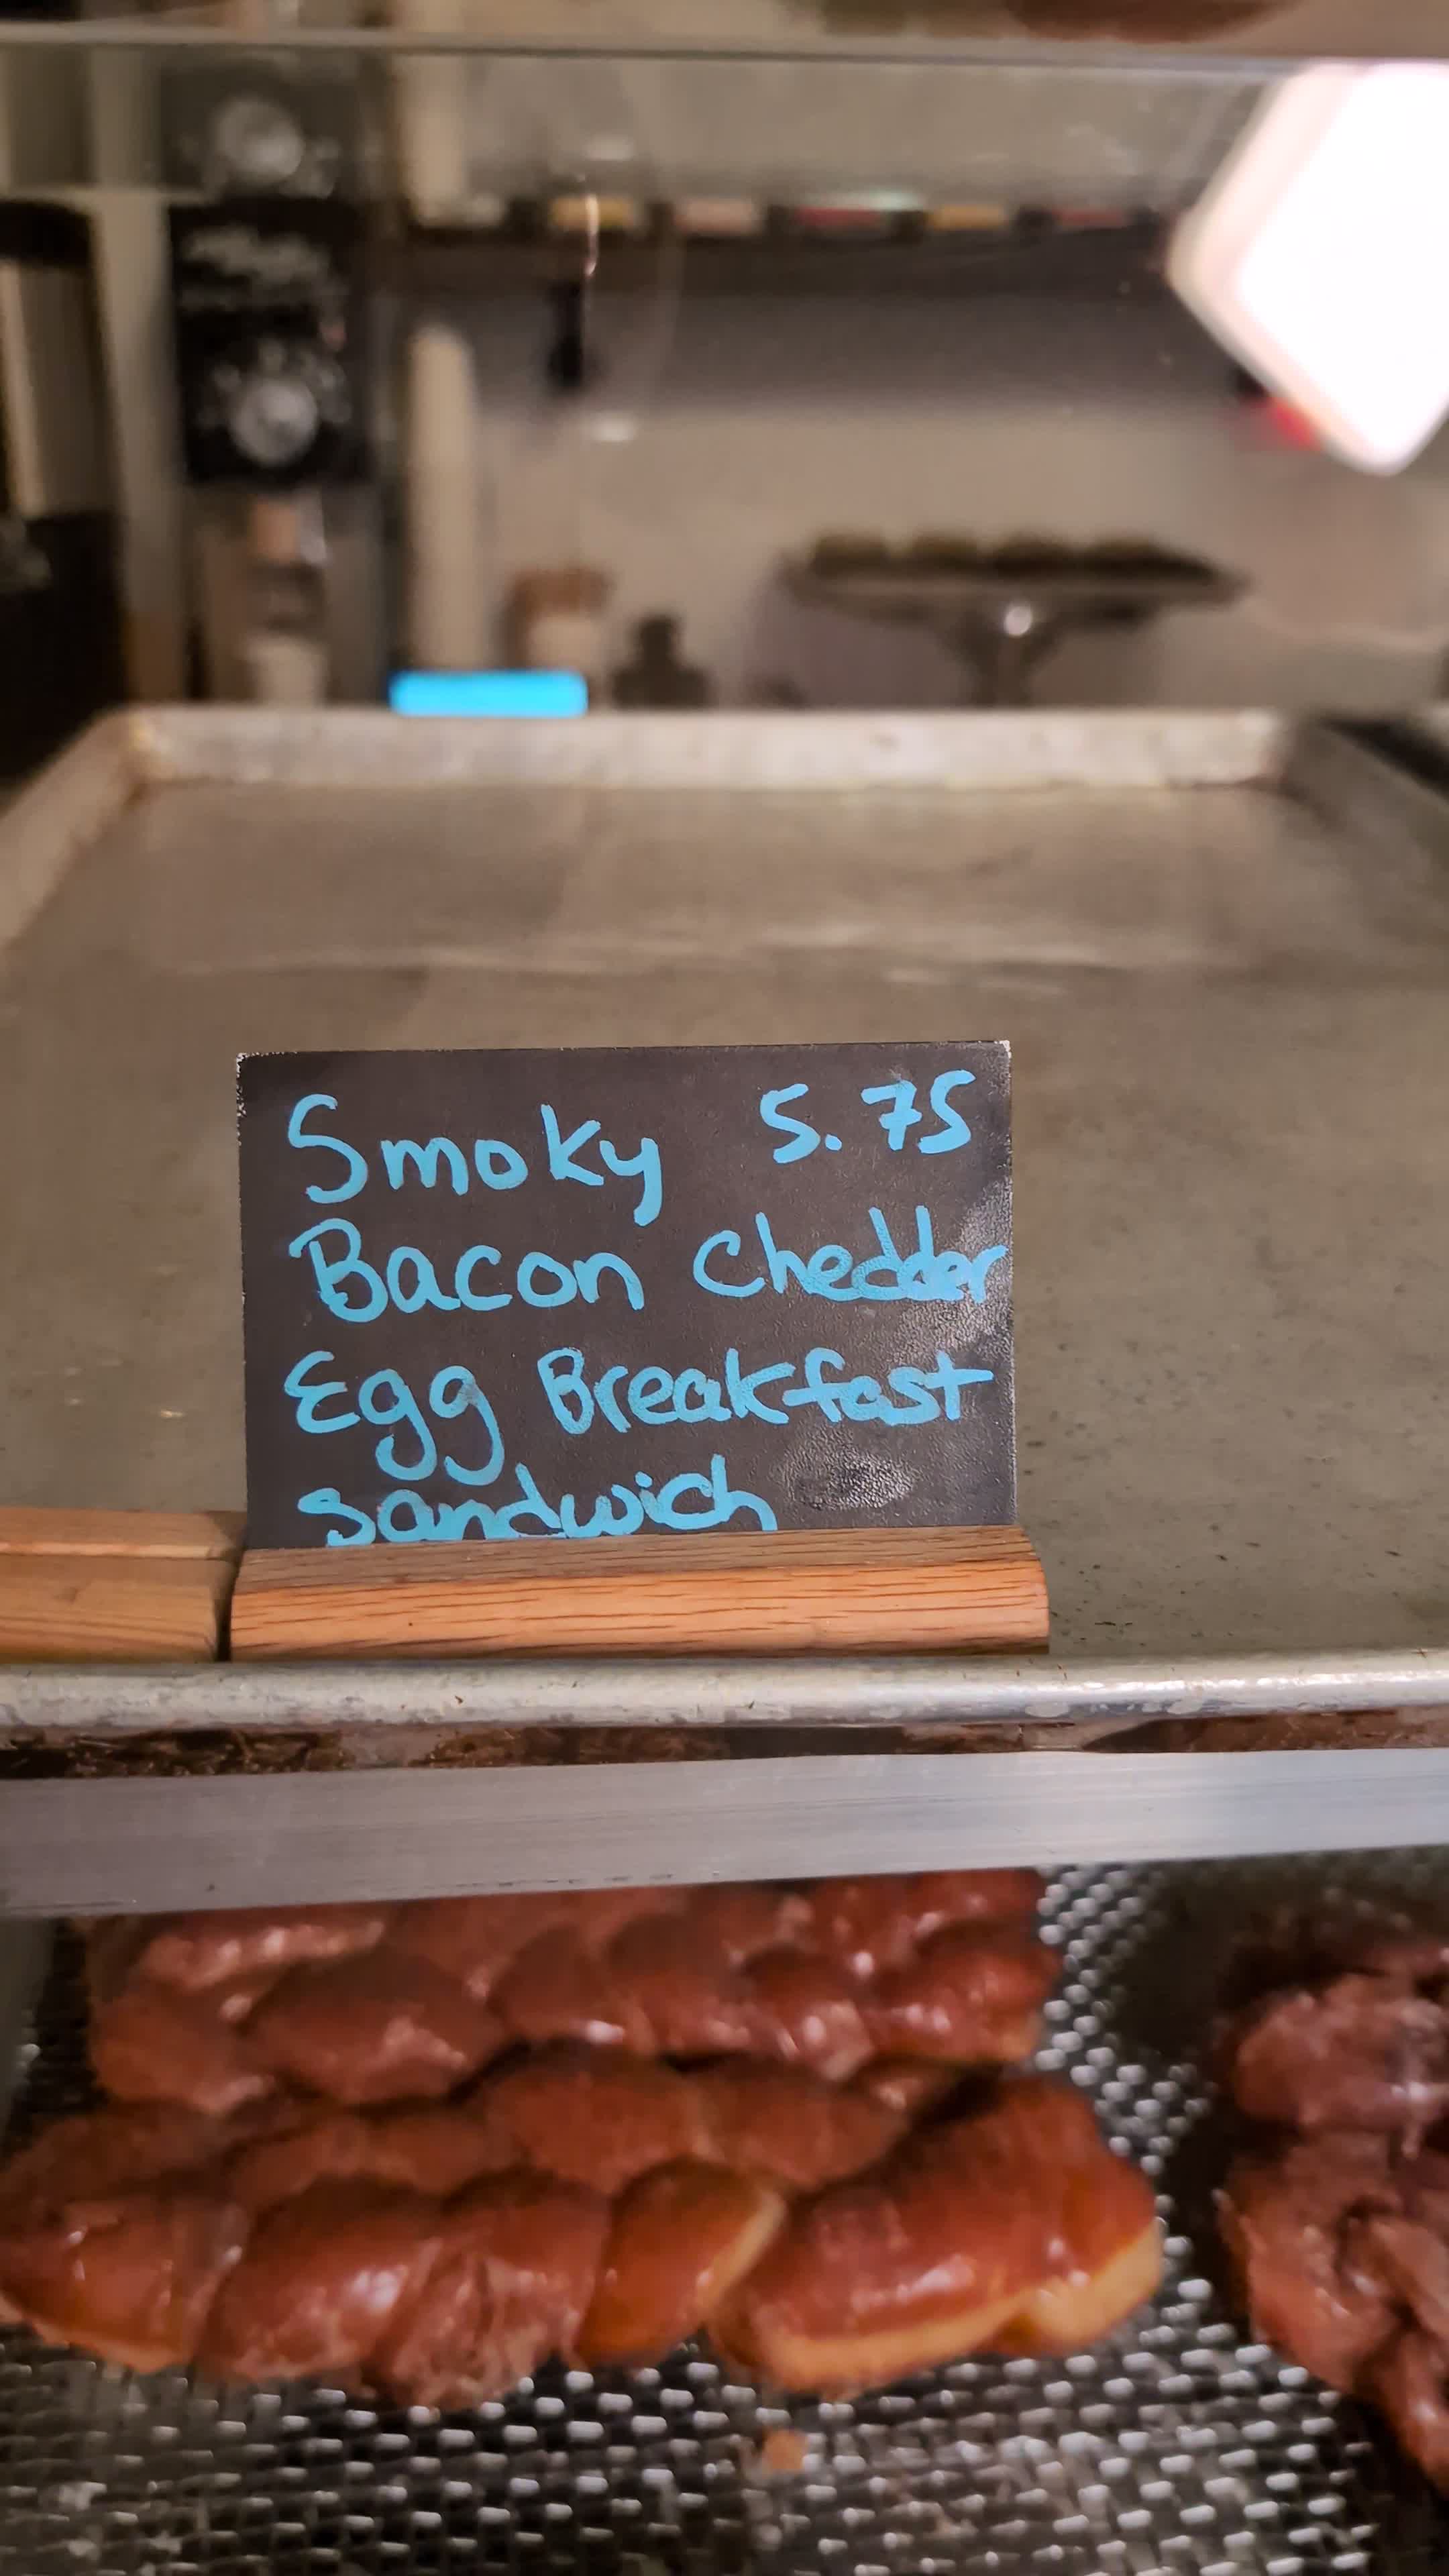 Smoky 5.75
Bacon Chedder
Egg Breakfast
Sandwich